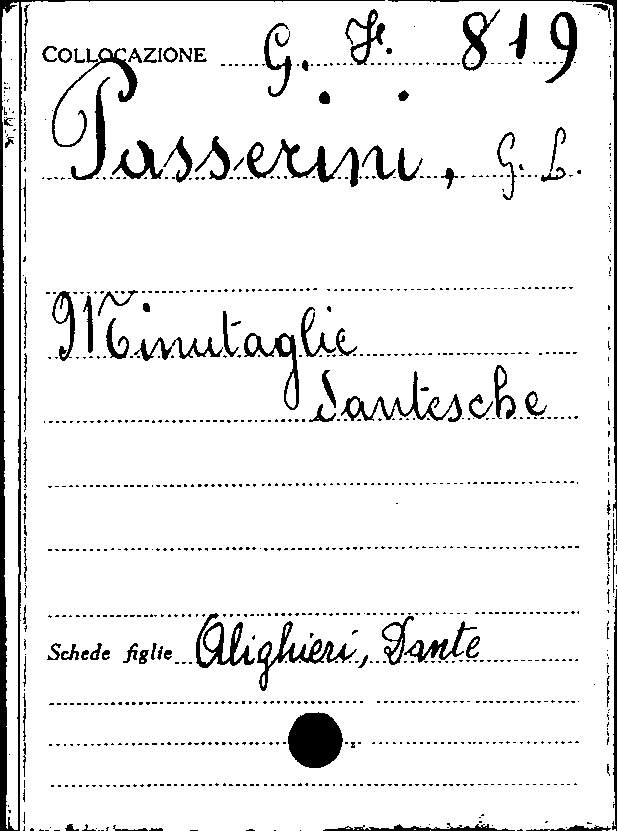 COLLOCAZIONE G. F. 819
Passerini, G. L.
Minutaglie
dantesche
Schede figlie Alighieri, Dante